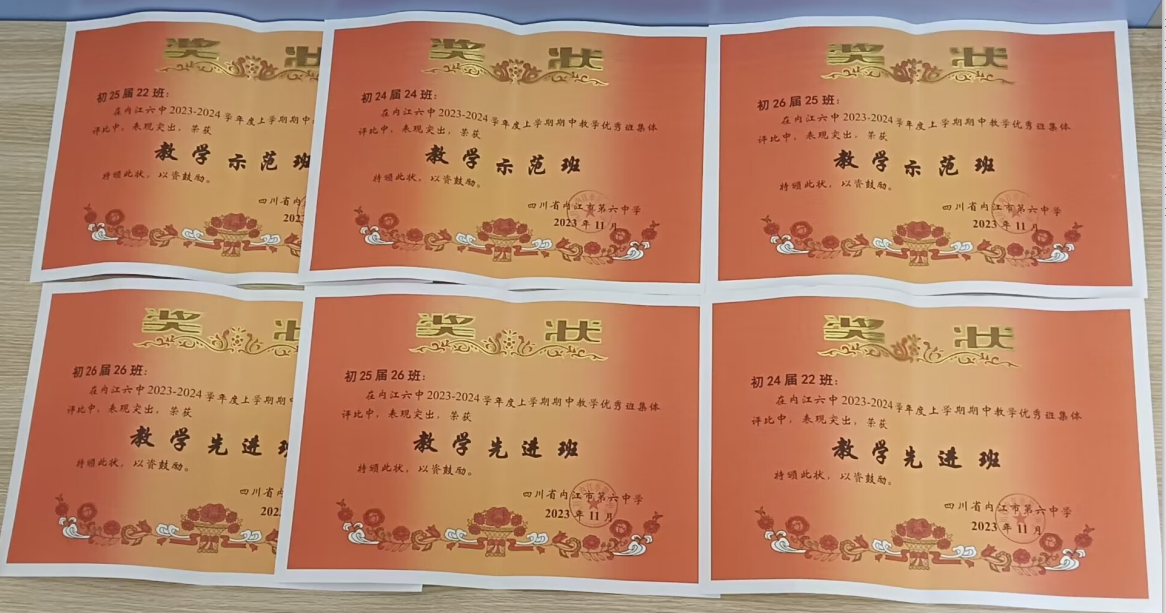 奖 状
初25届22班：
在内江六中2023-2024学年度上学期期中
评比中，表现突出，荣获
教学示范班
特颁此状，以资鼓励。
四川省内
2023
奖 状
初24届24班：
在内江六中2023-2024学年度上学期期中教学优秀班集体
评比中，表现突出，荣获
教学示范班
特颁此状，以资鼓励。
四川省内江市第六中学
2023年11月
奖 状
初26届25班：
在内江六中2023-2024学年度上学期期中教学优秀班集体
评比中，表现突出，荣获
教学示范班
特颁此状，以资鼓励。
四川省内江市第六中学
2023年11月
奖 状
初26届26班：
在内江六中2023-2024学年度上学期期中
评比中，表现突出，荣获
教学先进班
特颁此状，以资鼓励。
四川省内
202
奖 状
初25届26班：
在内江六中2023-2024学年度上学期期中教学优秀班集体
评比中，表现突出，荣获
教学先进班
特颁此状，以资鼓励。
四川省内江市第六中学
2023年11月
奖 状
初24届22班：
在内江六中2023-2024学年度上学期期中教学优秀班集体
评比中，表现突出，荣获
教学先进班
特颁此状，以资鼓励。
四川省内江市第六中学
2023年11月